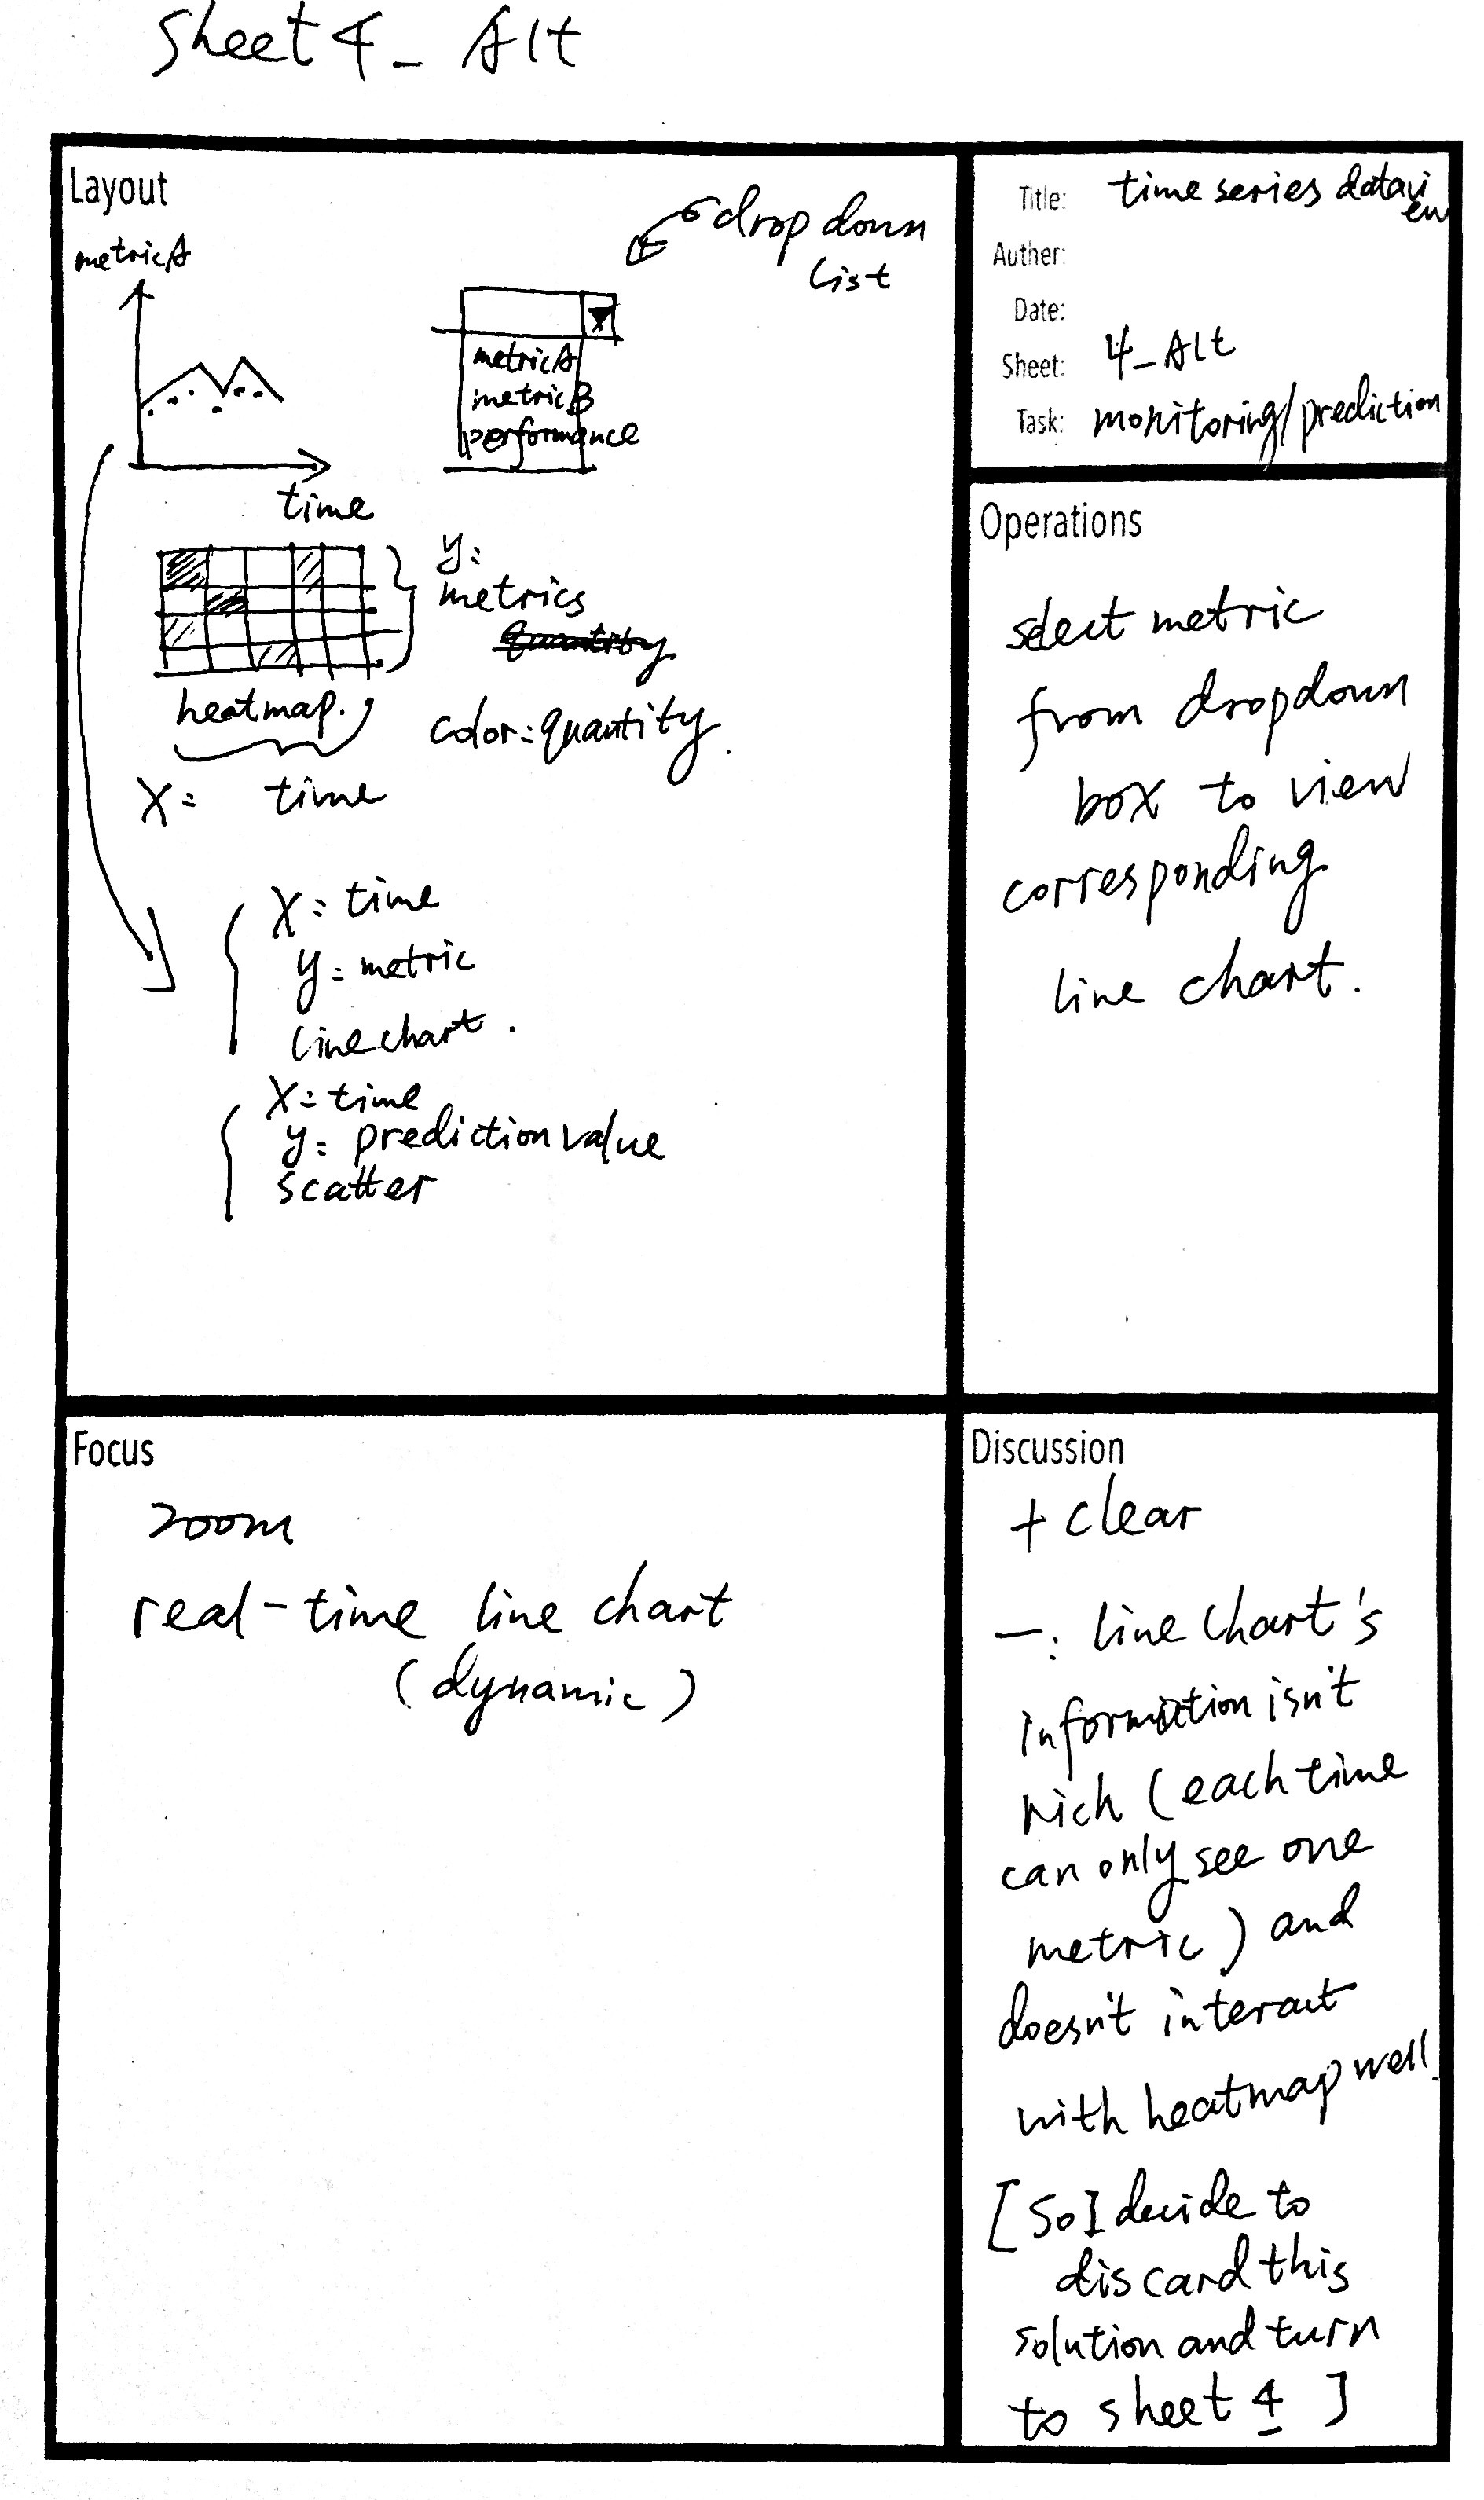 Sheet 4_ Alt
Layout
metricA
dropdown
list
metricA
metricB
performance
time
y:
metrics
quantity
heatmap.
color=quantity.
X= time
X= time
y= metric
linechart.
X= time
y= prediction value
scatter
Title: time series datavi
ew
Auther:
Date:
Sheet: 4_Alt
Task: monitoring/prediction
Operations
select metric
from dropdown
box to view
corresponding
line chart.
Focus
zoom
real-time line chart
(dynamic)
Discussion
+ clear
-: line chart's
information isn't
rich (each time
can only see one
metric) and
doesn't interact
with heatmap well.
[So I decide to
discard this
solution and turn
to sheet 4 ]